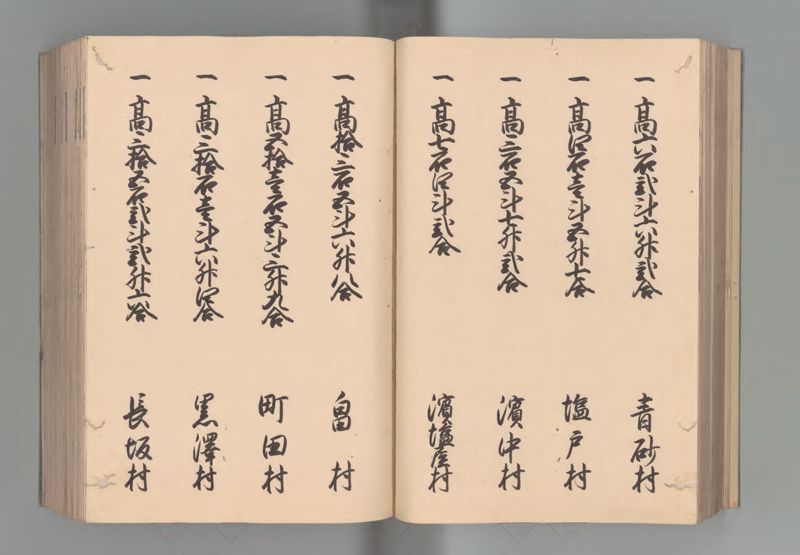 一 高六石弐斗六升弐合 青砂村
一 高四石壱斗五升七合 塩戸村
一 高三石五斗七升弐合 濱中村
一 高七石四斗弐合 濱塩屋村
一 高拾三石五斗六升八合 畠村
一 高五拾壱石五斗三升九合 町田村
一 高三拾石壱斗六升四合 黒澤村
一 高三拾五石弐斗弐升六合 長坂村